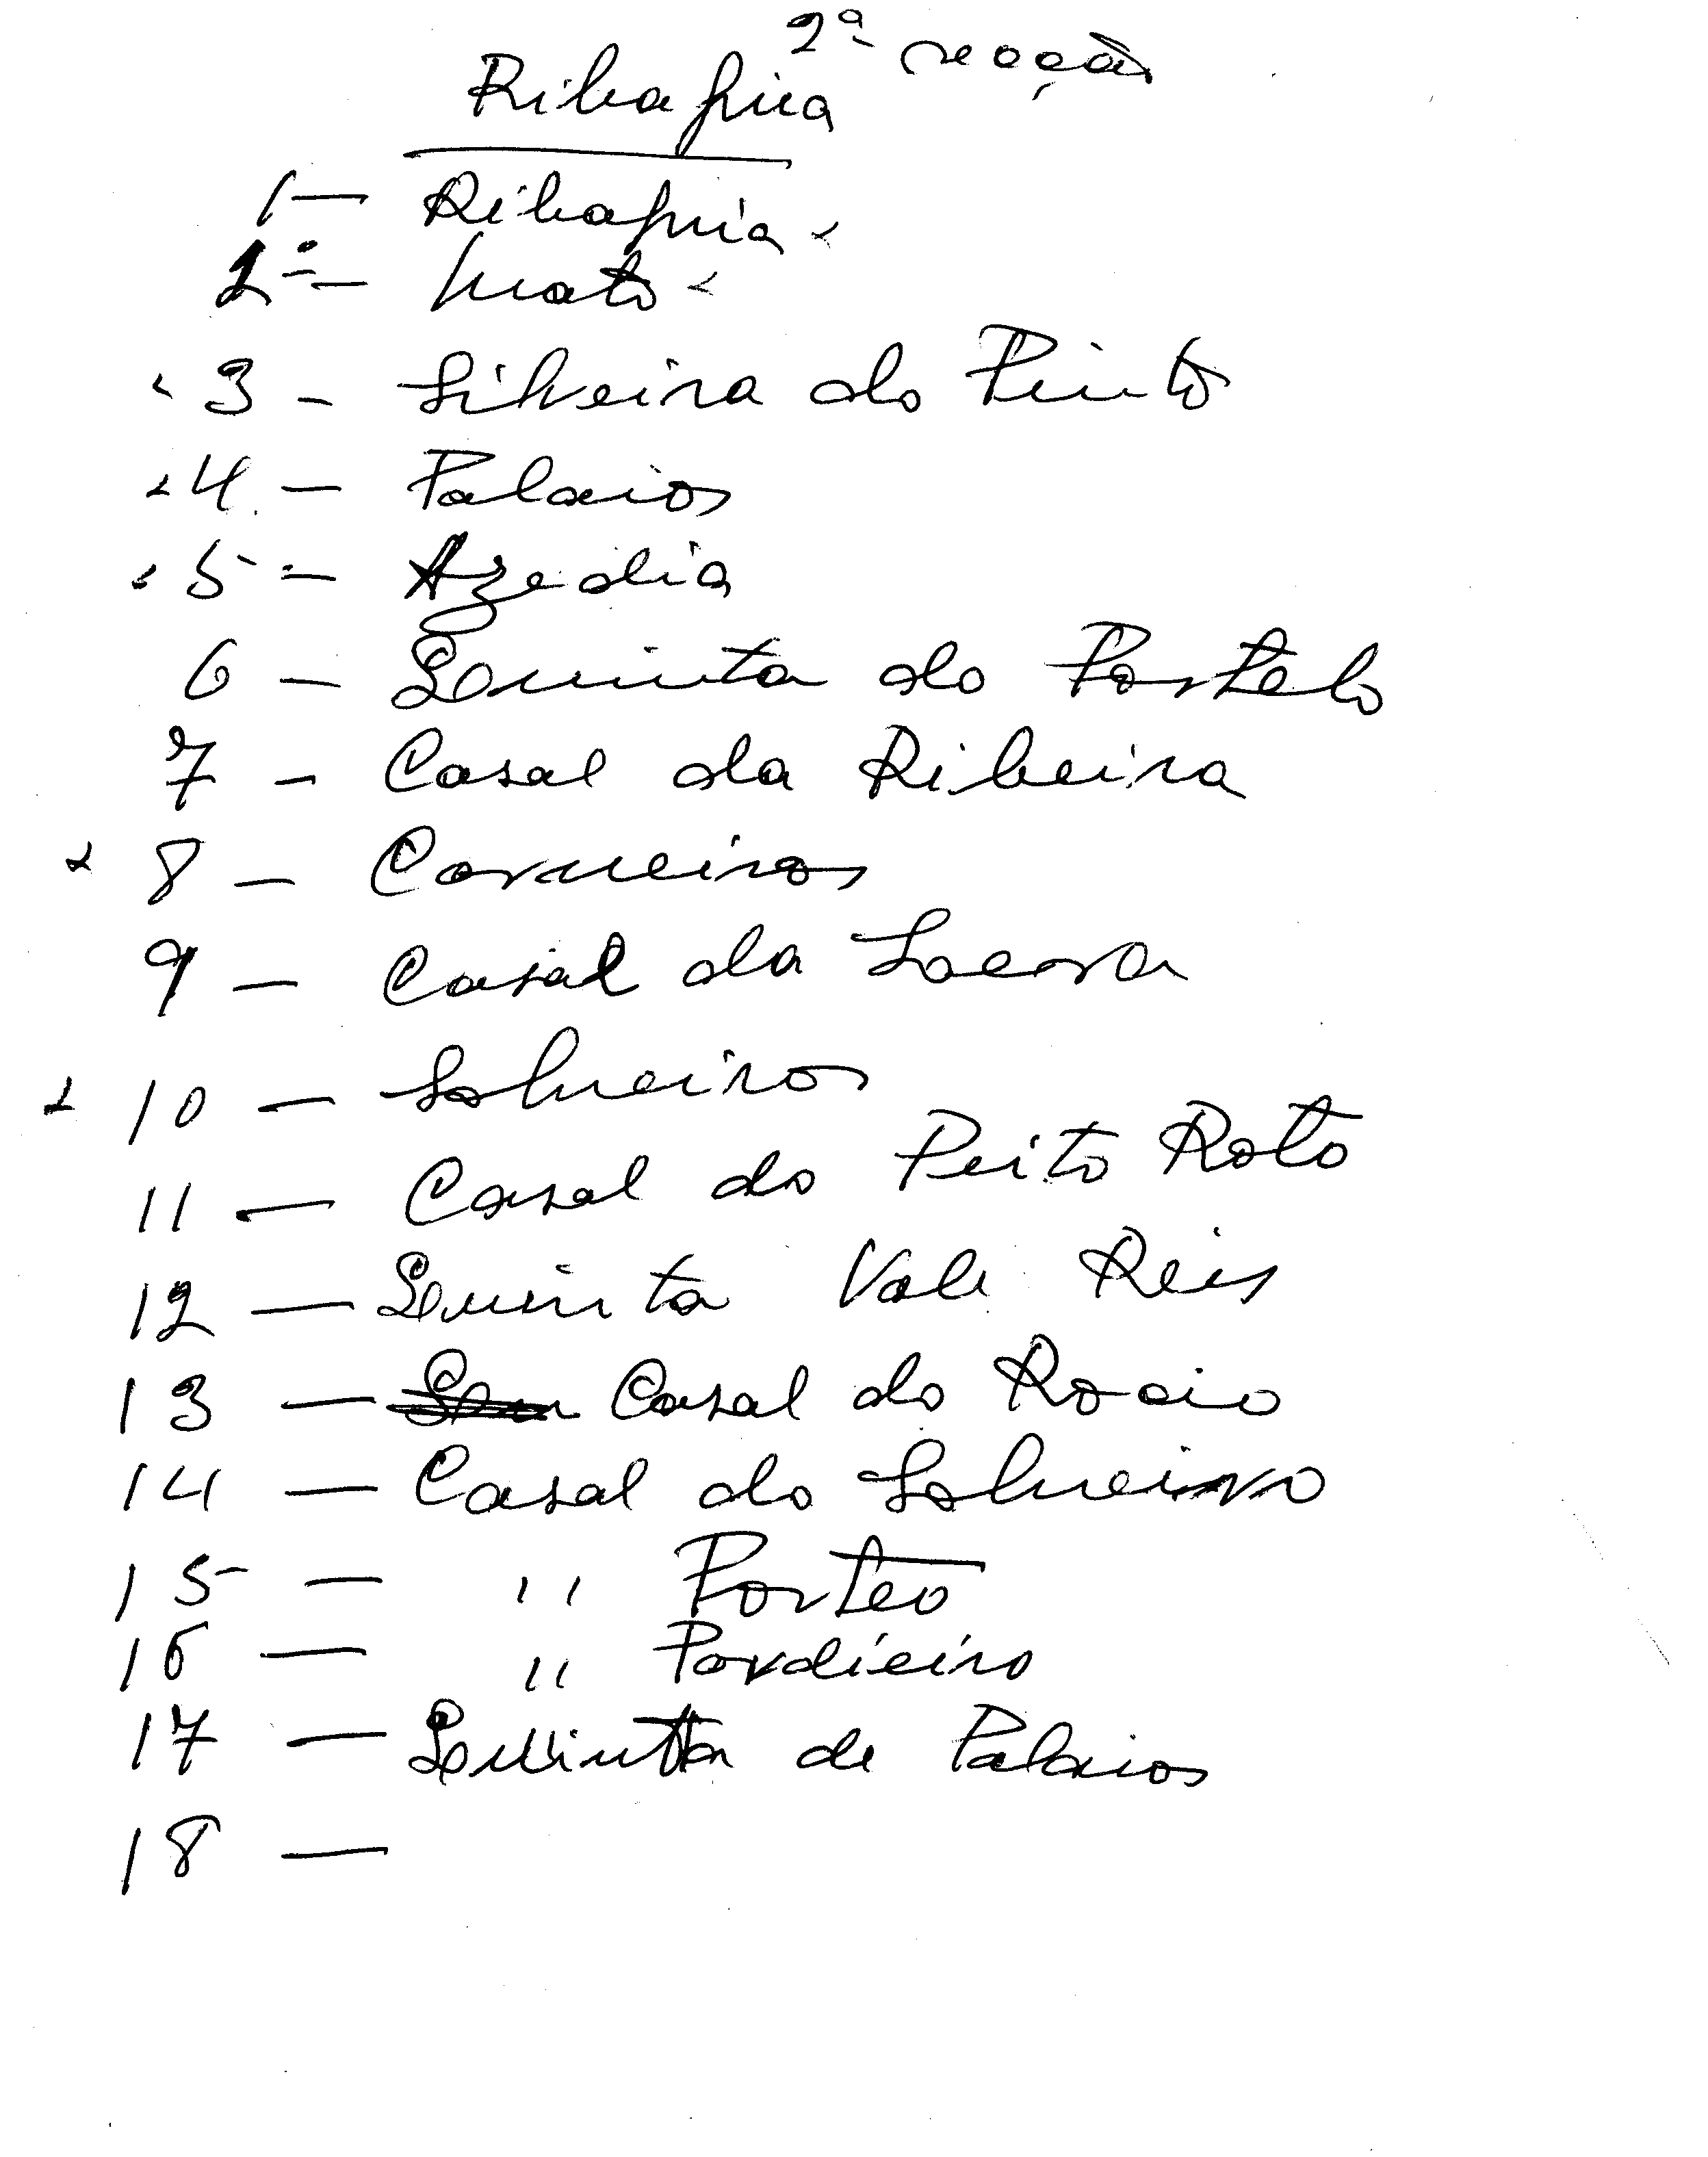 2ª secção
Ribafria
1 — Ribafria
2º — Mato
3 — Silveira do Pinto
4 — Palaios
5 — Azedia
6 — Quinta do Portelo
7 — Casal da Ribeira
8 — Carneiros
9 — Casal da
10 — Salueiros
11 — Casal do Peito Roto
12 — Quinta Vale Reis
13 — Casal do Rocio
14 — Casal do Salueiro
15 — " Porteo
16 — " Pardieiro
17 — Quinta de Palaios
18 —